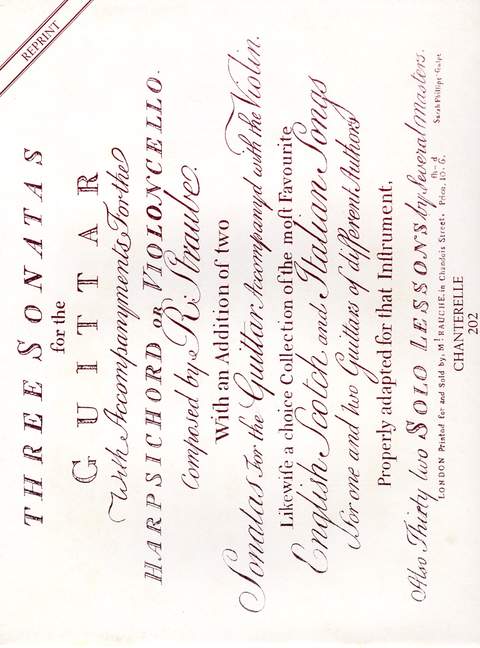 REPRINT
THREE SONATAS
for the
GUITTAR
With Accompanyments For the
HARPSICHORD OR VIOLONCELLO.
Composed by R: Straube.
With an Addition of two
Sonatas For the Guittar Accompanyd with the Violin.
Likewiſe a choice Collection of the moſt Favourite
English Scotch and Italian Songs
For one and two Guitars of different Authors
Properly adapted for that Inſtrument,
Also Thirty two SOLO LESSONS by Several Masters.
LONDON Printed for and Sold by, Mr. RAUCHE, in Chandois Street, Price, 10s.h-6.d
Sarah Phillips Sculpt
CHANTERELLE
202